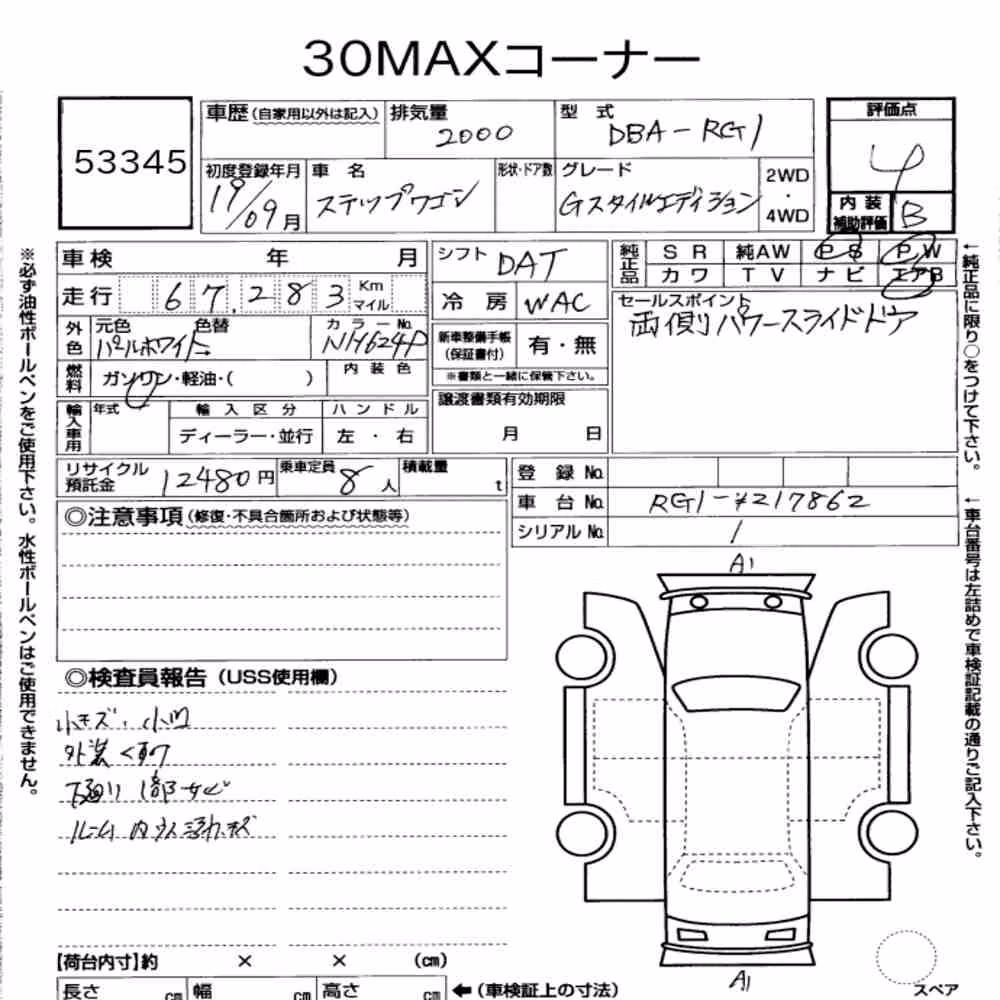 30MAXコーナー
53345
車歴(自家用以外は記入) 排気量 2000 型式 DBA-RG1 評価点 4
初度登録年月 19/09月 車名 ステップワゴン 形状・ドア数 グレード Gスタイルエディション 2WD・4WD
内装補助評価 B
車検 年 月 シフト DAT 純正品 SR 純AW PS PW
カワ TV ナビ エアB
走行 67,283 Km マイル 冷房 WAC
セールスポイント
両側パワースライドドア
外色 元色 パールホワイト 色替 → カラーNo. NH624P
新車整備手帳(保証書付) 有・無
※書類と一緒に保管下さい。
燃料 ガソリン・軽油・( ) 内装色
譲渡書類有効期限
月 日
輸入車用 年式 輸入区分 ハンドル
ディーラー・並行 左・右
リサイクル預託金 12480円 乗車定員 8人 積載量 t
登録No.
車台No. RG1-*217862
シリアルNo. 1
◎注意事項(修復・不具合箇所および状態等)
◎検査員報告(USS使用欄)
小キズ・小凹
外装くすり
下廻り1部サビ
ルーム内ヨゴレキズ
A1
A1
【荷台内寸】約 × × (cm)
長さ cm 幅 cm 高さ cm ←(車検証上の寸法)
スペア
※必ず油性ボールペンをご使用下さい。水性ボールペンはご使用できません。
←純正品に限り○をつけて下さい。
←車台番号は左詰めで車検証記載の通りご記入下さい。